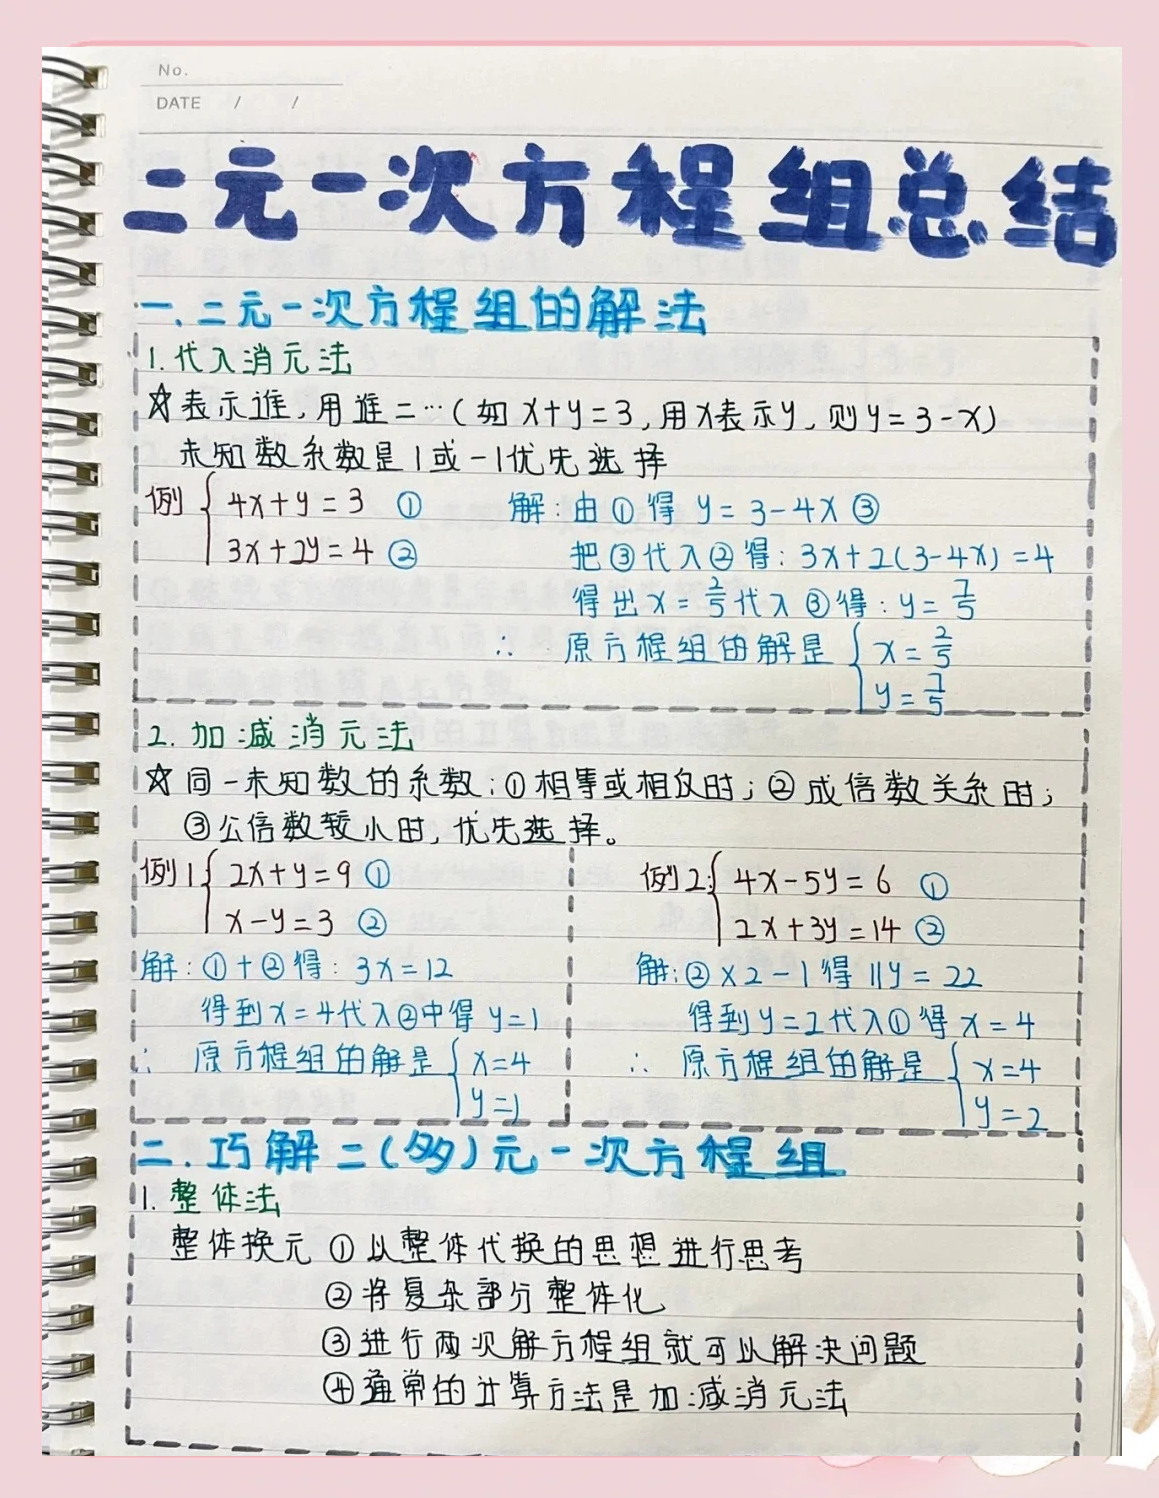 No.
DATE / /
二元一次方程组总结
一、二元一次方程组的解法
1.代入消元法
☆表示谁,用谁二…(如x+y=3,用x表示y,则y=3-x)
未知数系数是1或-1优先选择
例 { 4x+y=3 ① 解:由①得 y=3-4x ③
3x+2y=4 ② 把③代入②得:3x+2(3-4x)=4
得出x=2/5代入③得:y=7/5
∴ 原方程组的解是 { x=2/5
y=7/5
2.加减消元法
☆同一未知数的系数:①相等或相反时;②成倍数关系时;
③公倍数较小时,优先选择。
例1 { 2x+y=9 ①
x-y=3 ②
解:①+②得:3x=12
得到x=4代入②中得 y=1
∴ 原方程组的解是 { x=4
y=1
例2: { 4x-5y=6 ①
2x+3y=14 ②
解:②×2-1得 11y=22
得到y=2代入①得x=4
∴ 原方程组的解是 { x=4
y=2
二.巧解二(多)元一次方程组
1.整体法
整体换元 ①以整体代换的思想进行思考
②将复杂部分整体化
③进行两次解方程组就可以解决问题
④通常的计算方法是加减消元法